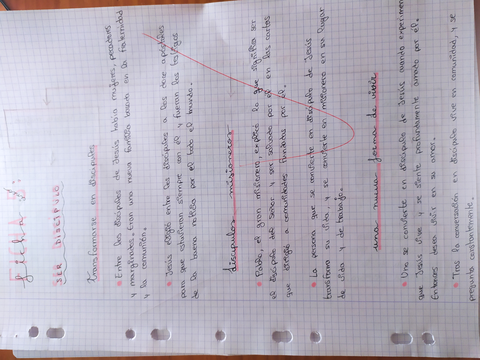 FICHA 2:
SER DISCÍPULO
Transformarse en discípulo
• Entre los discípulos de Jesús había mujeres, pecadores
y marginados. Eran una nueva familia basada en la fraternidad
y la comunión.
• Jesús eligió entre los discípulos a los doce apóstoles
para que estuvieran siempre con él y fueran los testigos
de su buena noticia por el todo el mundo.
discípulos misioneros
• Pablo, el gran misionero, explicó lo que significa ser
el discípulo del señor y ser salvado por él en las cartas
que dirigió a comunidades fundadas por él.
• La persona que se convierte en discípulo de Jesús
transforma su vida, y se convierte en misionero en su lugar
de vida y de trabajo.
una nueva forma de vivir
• Uno se convierte en discípulo de Jesús cuando experimen
que Jesús vive y se siente profundamente amado por él.
Entonces desea vivir en su amor.
• Tras la conversación en discípulo vive en comunidad, y se
pregunta constantemente.